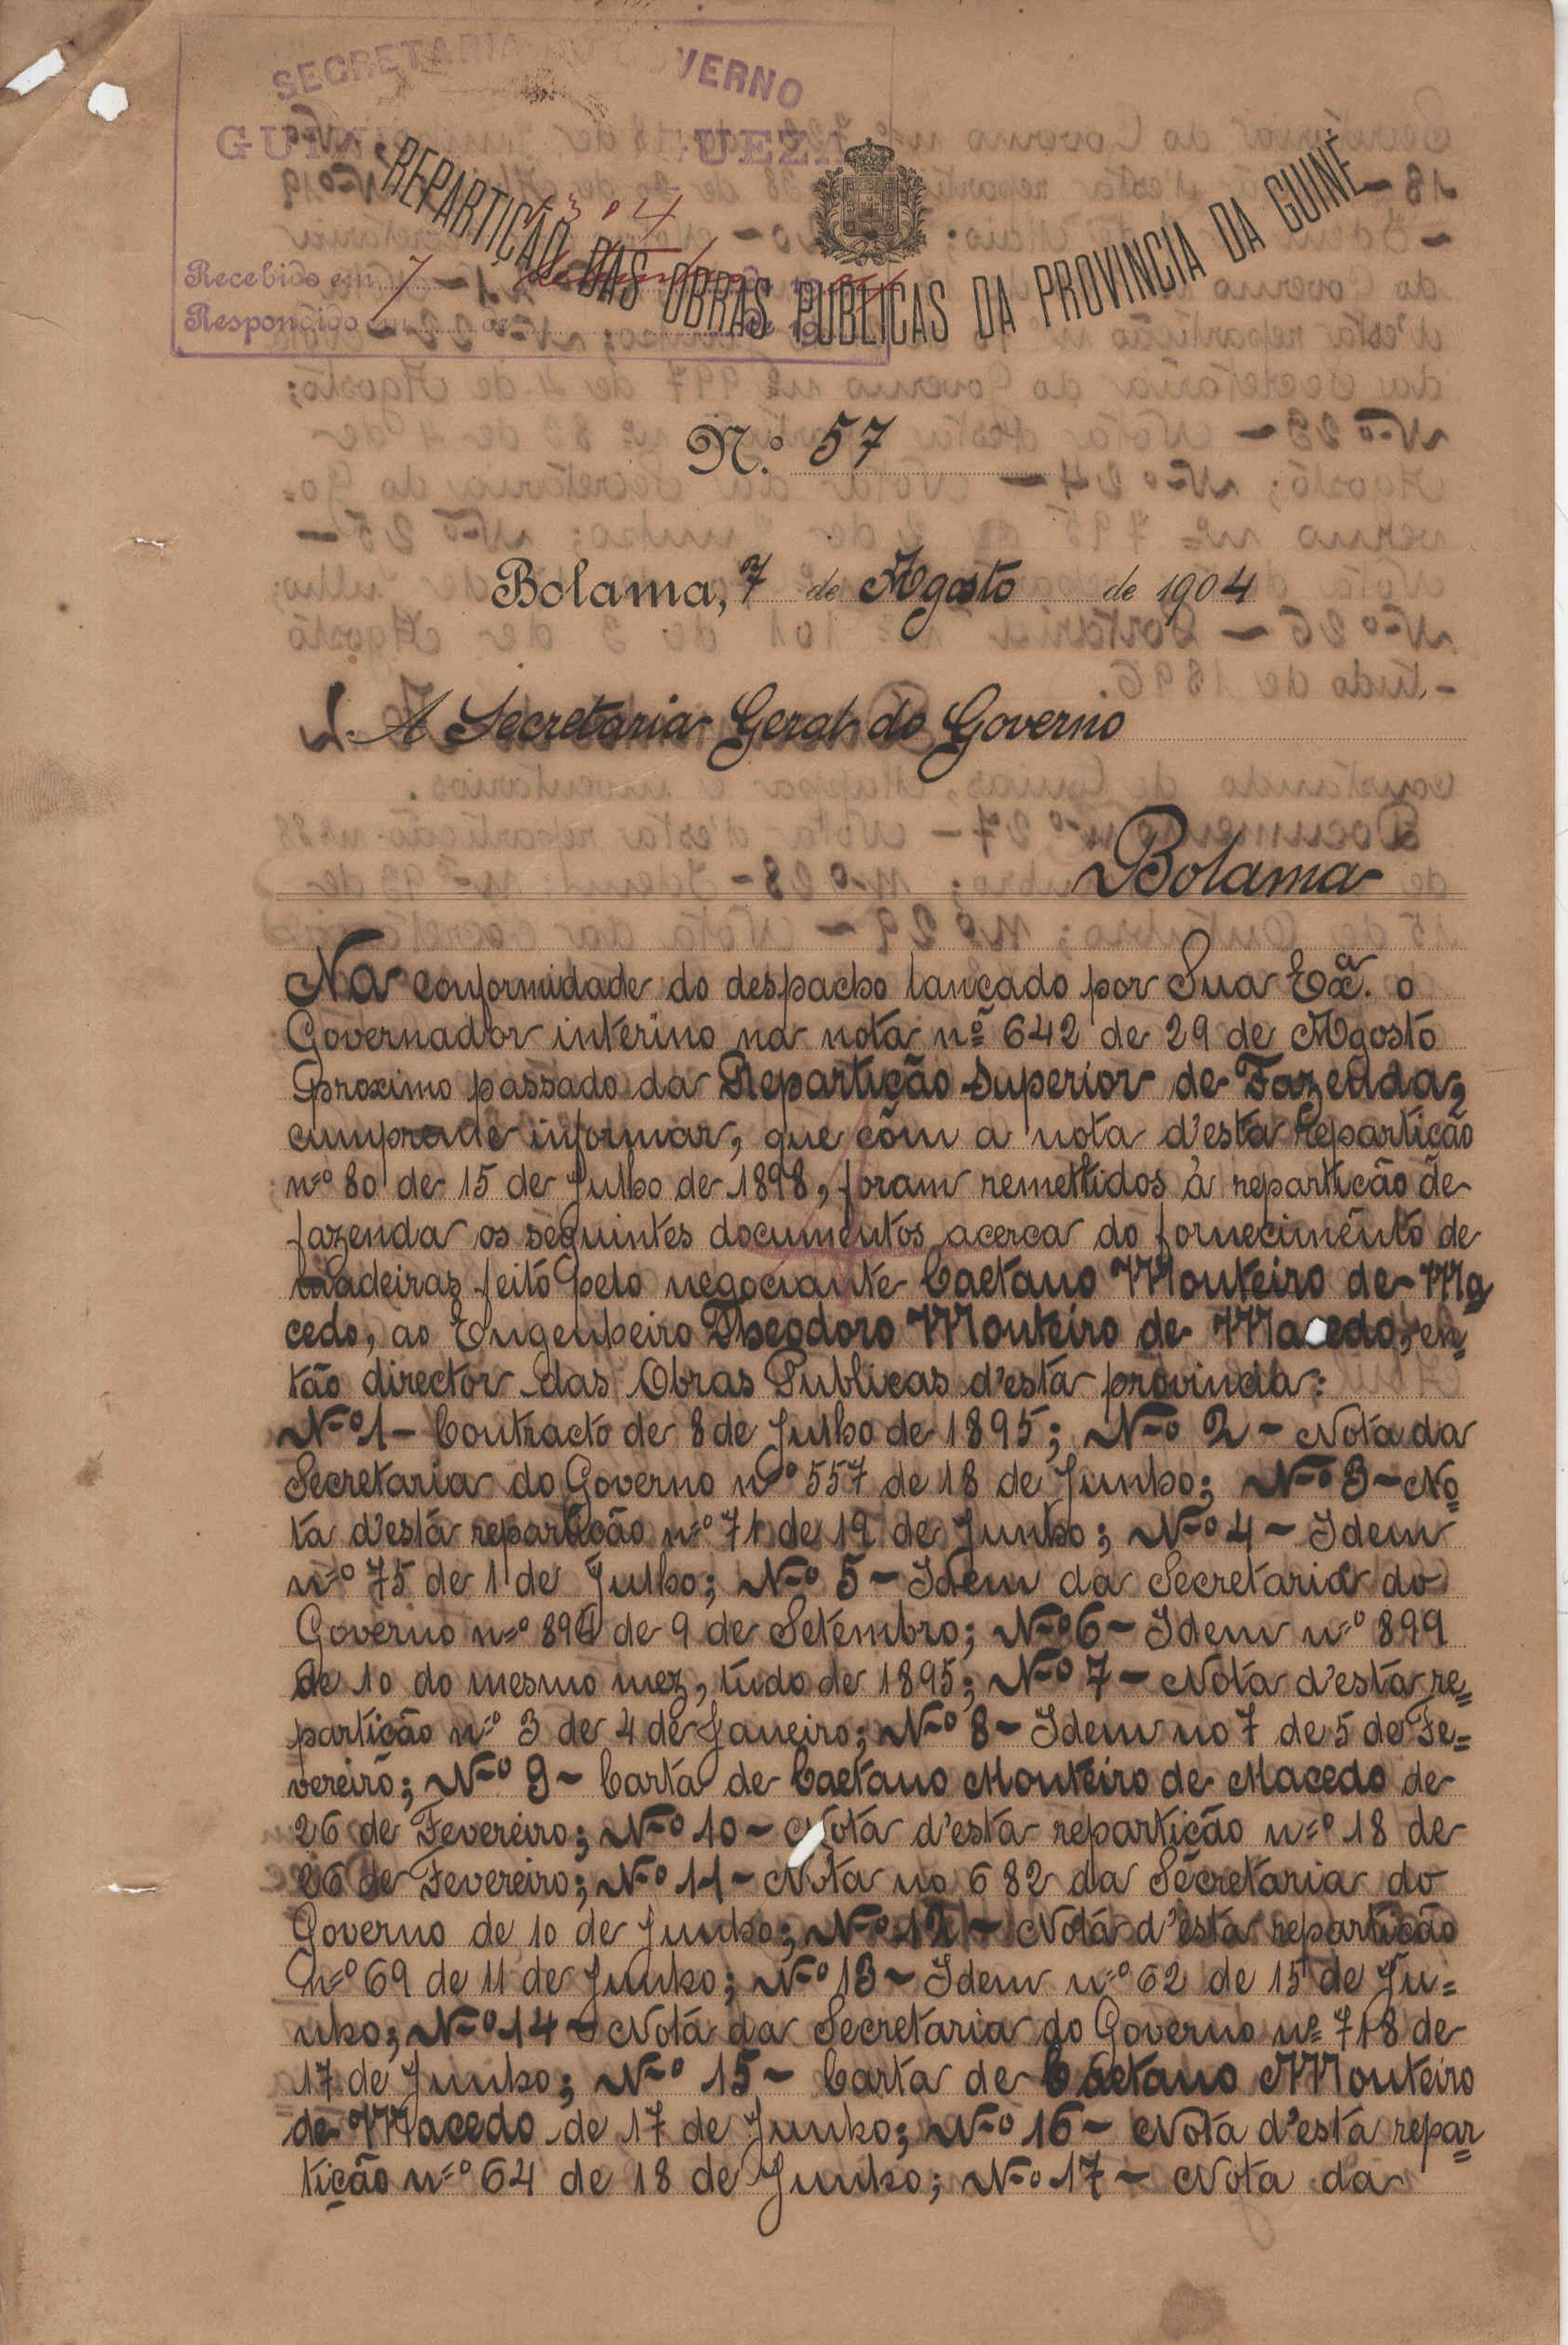 SECRETARIA DO GOVERNO
REPARTIÇÃO DAS OBRAS PUBLICAS DA PROVINCIA DA GUINÉ
1304
Recebido em 7 de Setembro de 1904
Respondido em de de 19
N.º 57
Bolama, 7 de Agosto de 1904
Á Secretaria Geral do Governo
Bolama
Na conformidade do despacho lançado por Sua Exª. o
Governador interino na nota nº 642 de 29 de Agosto
proximo passado da Repartição Superior de Fazenda,
cumpre-de informar, que com a nota d'esta repartição
nº 80 de 15 de Julho de 1898, foram remettidos à repartição de
fazenda os seguintes documentos acerca do fornecimento de
madeiras feito pelo negociante Caetano Monteiro de Ma
cedo, ao Engenheiro Theodoro Monteiro de Macedo, en=
tão director das Obras Publicas d'esta provincia:
Nº 1 – Contracto de 8 de Julho de 1895; Nº 2 – Nota da
Secretaria do Governo nº 557 de 18 de Junho; Nº 3 – No=
ta d'esta repartição nº 71 de 19 de Junho; Nº 4 – Idem
nº 75 de 1 de Julho; Nº 5 – Idem da Secretaria do
Governo nº de 9 de Setembro; Nº 6 – Idem nº 899
de 10 do mesmo mez, tudo de 1895; Nº 7 – Nota d'esta re=
partição nº 3 de 4 de Janeiro; Nº 8 – Idem no 7 de 5 de Fe=
vereiro; Nº 9 – Carta de Caetano Monteiro de Macedo de
26 de Fevereiro; Nº 10 – Nota d'esta repartição nº 18 de
26 de Fevereiro; Nº 11 – Nota no 682 da Secretaria do
Governo de 10 de Junho; Nº 12 – Nota d'esta repartição
nº 69 de 11 de Junho; Nº 13 – Idem nº 62 de 15 de Ju=
nho; Nº 14 – Nota da Secretaria do Governo nº 718 de
17 de Junho; Nº 15 – Carta de Caetano Monteiro
de Macedo de 17 de Junho; Nº 16 – Nota d'esta repar=
tição nº 64 de 18 de Junho; Nº 17 – Nota da